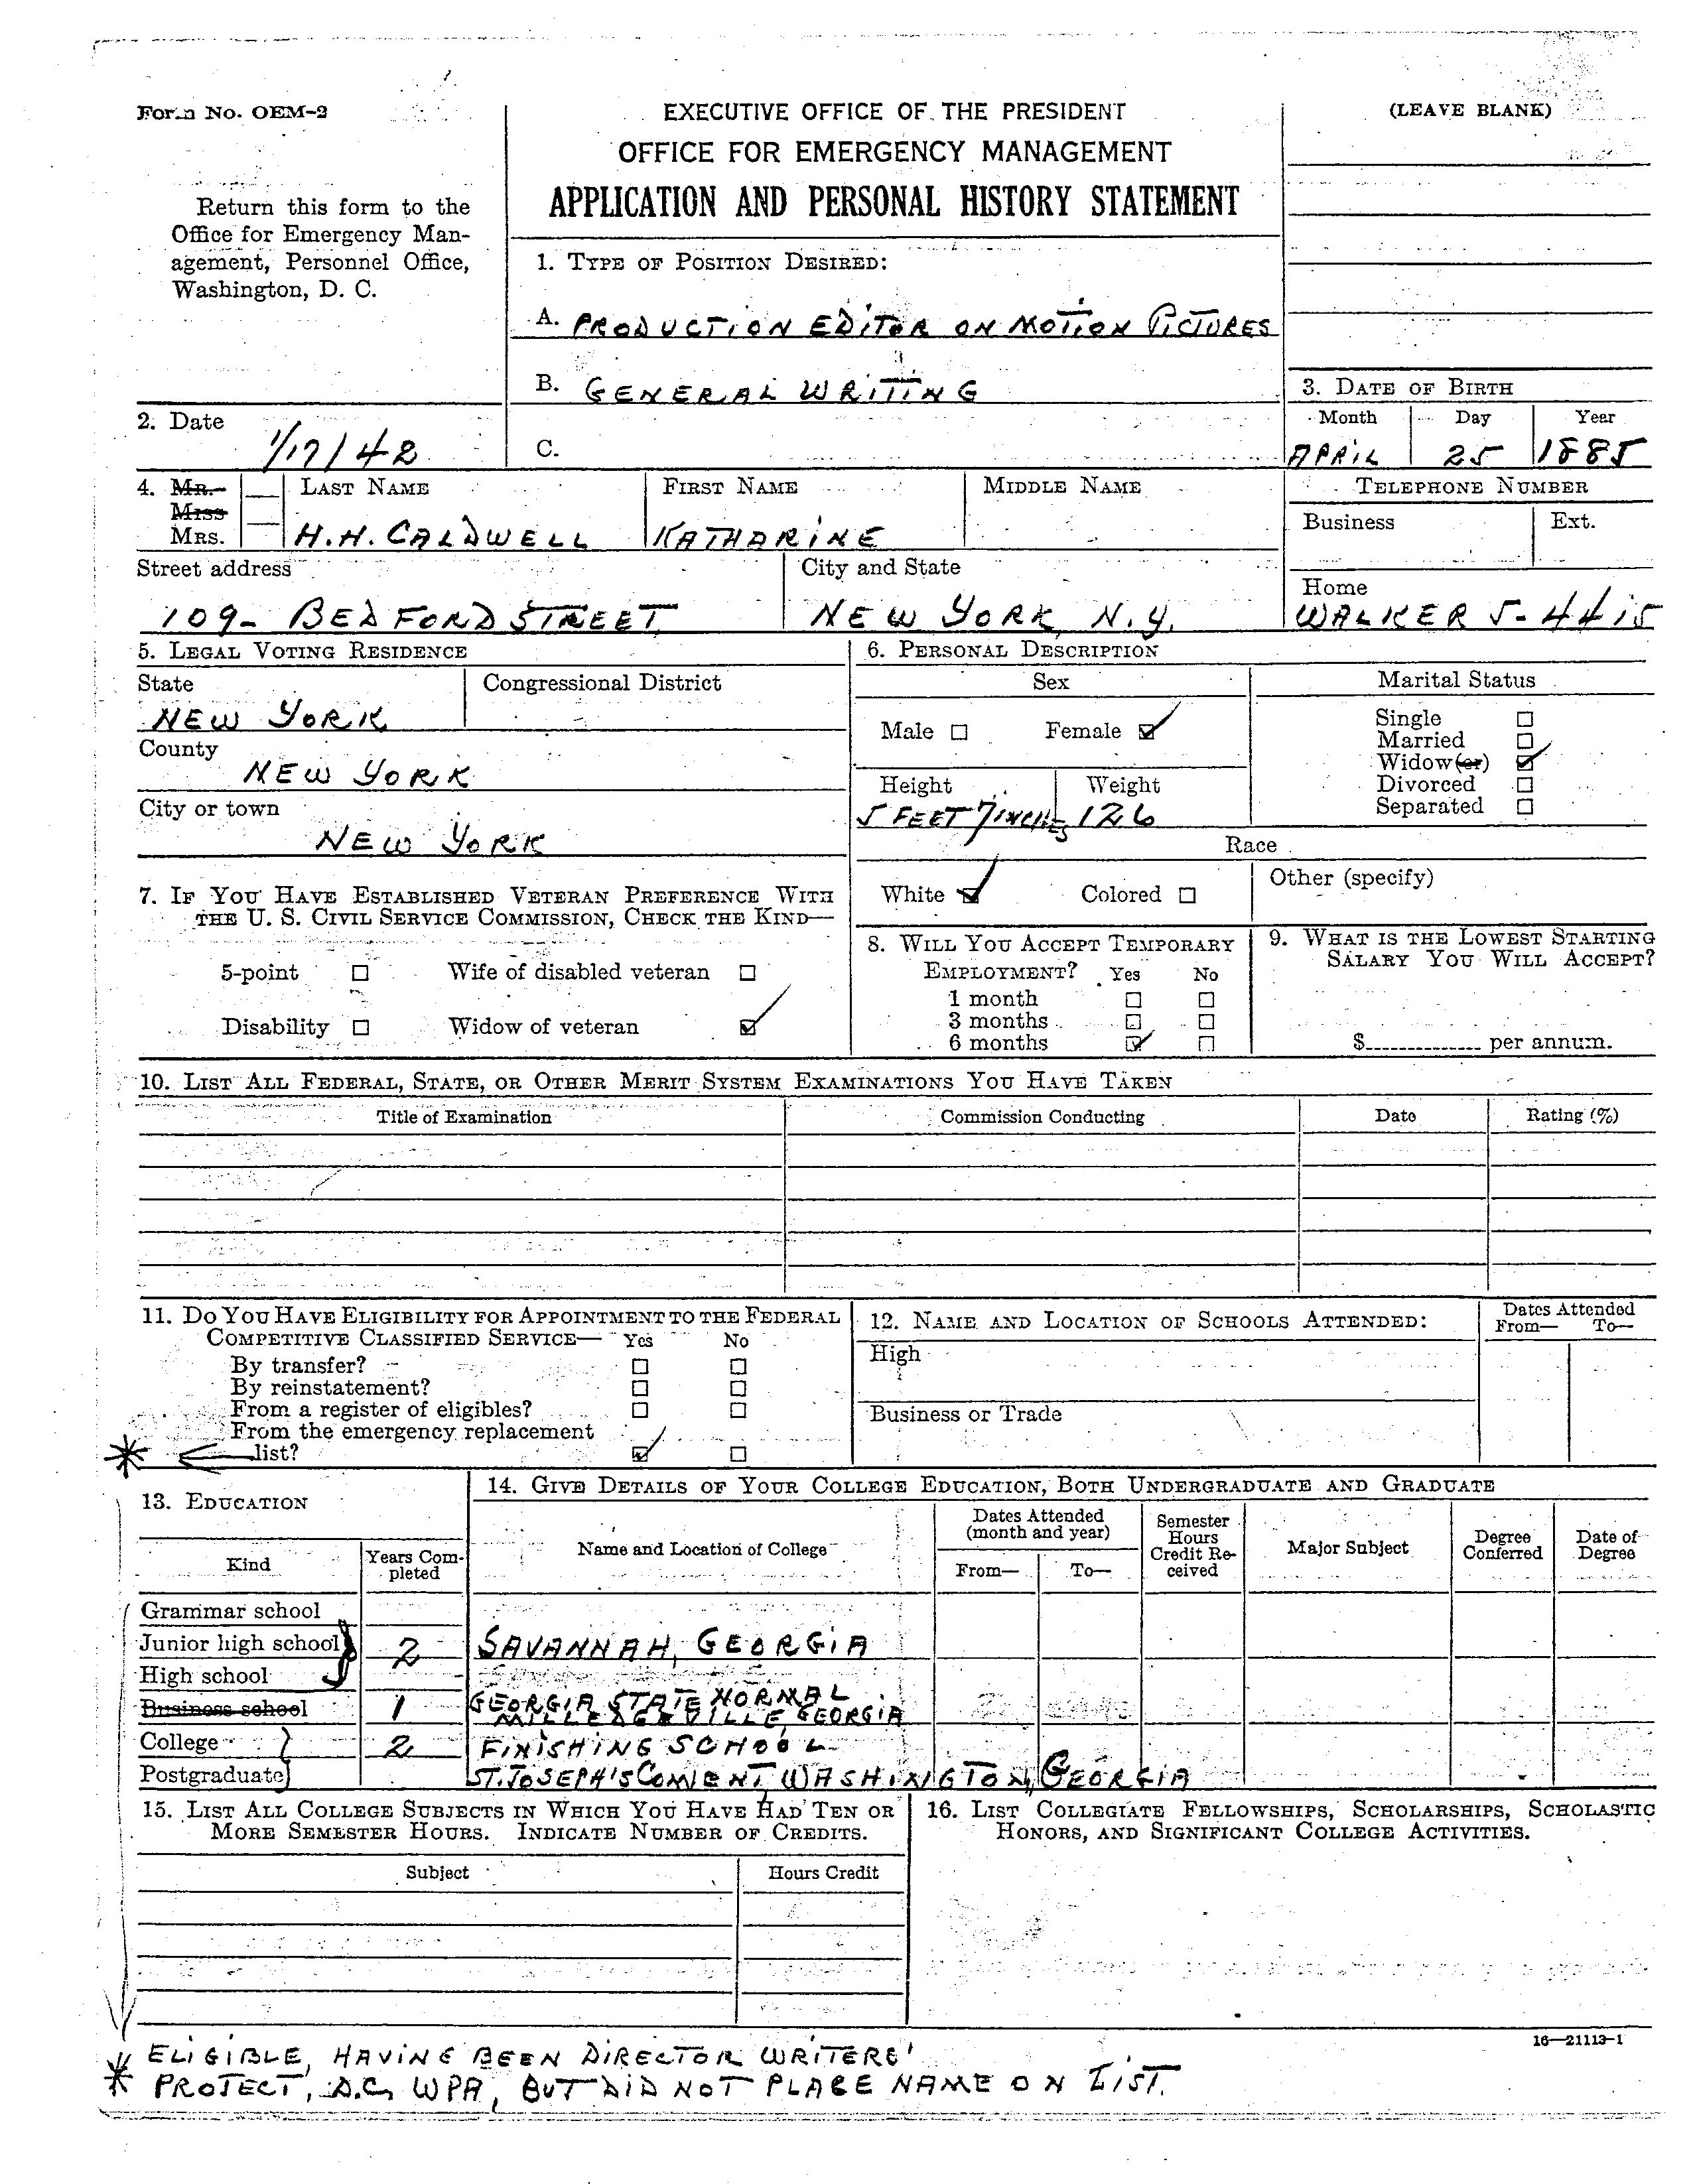 Form No. OEM-2
Return this form to the
Office for Emergency Man-
agement, Personnel Office,
Washington, D. C.
EXECUTIVE OFFICE OF THE PRESIDENT
OFFICE FOR EMERGENCY MANAGEMENT
APPLICATION AND PERSONAL HISTORY STATEMENT
(LEAVE BLANK)
1. TYPE OF POSITION DESIRED:
A. PRODUCTION EDITOR ON MOTION PICTURES
B. GENERAL WRITING
C.
2. Date
1/17/42
3. DATE OF BIRTH
Month Day Year
APRIL 25 1885
4. MR.
MISS
MRS.
LAST NAME FIRST NAME MIDDLE NAME
H.H. CALDWELL KATHARINE
TELEPHONE NUMBER
Business Ext.
Home
WALKER 5-4415
Street address City and State
109- BEDFORD STREET NEW YORK, N.Y.
5. LEGAL VOTING RESIDENCE
State Congressional District
NEW YORK
County
NEW YORK
City or town
NEW YORK
6. PERSONAL DESCRIPTION
Sex Marital Status
Male Female
Single
Married
Widow(er)
Divorced
Separated
Height Weight
5 FEET 7 INCHES 126
Race
White Colored Other (specify)
7. IF YOU HAVE ESTABLISHED VETERAN PREFERENCE WITH
THE U. S. CIVIL SERVICE COMMISSION, CHECK THE KIND—
5-point Wife of disabled veteran
Disability Widow of veteran
8. WILL YOU ACCEPT TEMPORARY
EMPLOYMENT? Yes No
1 month
3 months
6 months
9. WHAT IS THE LOWEST STARTING
SALARY YOU WILL ACCEPT?
$ per annum.
10. LIST ALL FEDERAL, STATE, OR OTHER MERIT SYSTEM EXAMINATIONS YOU HAVE TAKEN
Title of Examination Commission Conducting Date Rating (%)
11. DO YOU HAVE ELIGIBILITY FOR APPOINTMENT TO THE FEDERAL
COMPETITIVE CLASSIFIED SERVICE— Yes No
By transfer?
By reinstatement?
From a register of eligibles?
From the emergency replacement
* list?
12. NAME AND LOCATION OF SCHOOLS ATTENDED:
Dates Attended
From— To—
High
Business or Trade
13. EDUCATION
Kind Years Com-
pleted
14. GIVE DETAILS OF YOUR COLLEGE EDUCATION, BOTH UNDERGRADUATE AND GRADUATE
Name and Location of College
Dates Attended
(month and year)
From— To—
Semester
Hours
Credit Re-
ceived
Major Subject
Degree
Conferred
Date of
Degree
Grammar school
Junior high school 2 SAVANNAH, GEORGIA
High school
Business school 1 GEORGIA STATE NORMAL
MILLEDGEVILLE, GEORGIA
College 2 FINISHING SCHOOL
Postgraduate ST. JOSEPH'S CONVENT, WASHINGTON, GEORGIA
15. LIST ALL COLLEGE SUBJECTS IN WHICH YOU HAVE HAD TEN OR
MORE SEMESTER HOURS. INDICATE NUMBER OF CREDITS.
Subject Hours Credit
16. LIST COLLEGIATE FELLOWSHIPS, SCHOLARSHIPS, SCHOLASTIC
HONORS, AND SIGNIFICANT COLLEGE ACTIVITIES.
16—21113-1
* ELIGIBLE, HAVING BEEN DIRECTOR WRITERS'
PROJECT, D.C. WPA, BUT DID NOT PLACE NAME ON LIST.